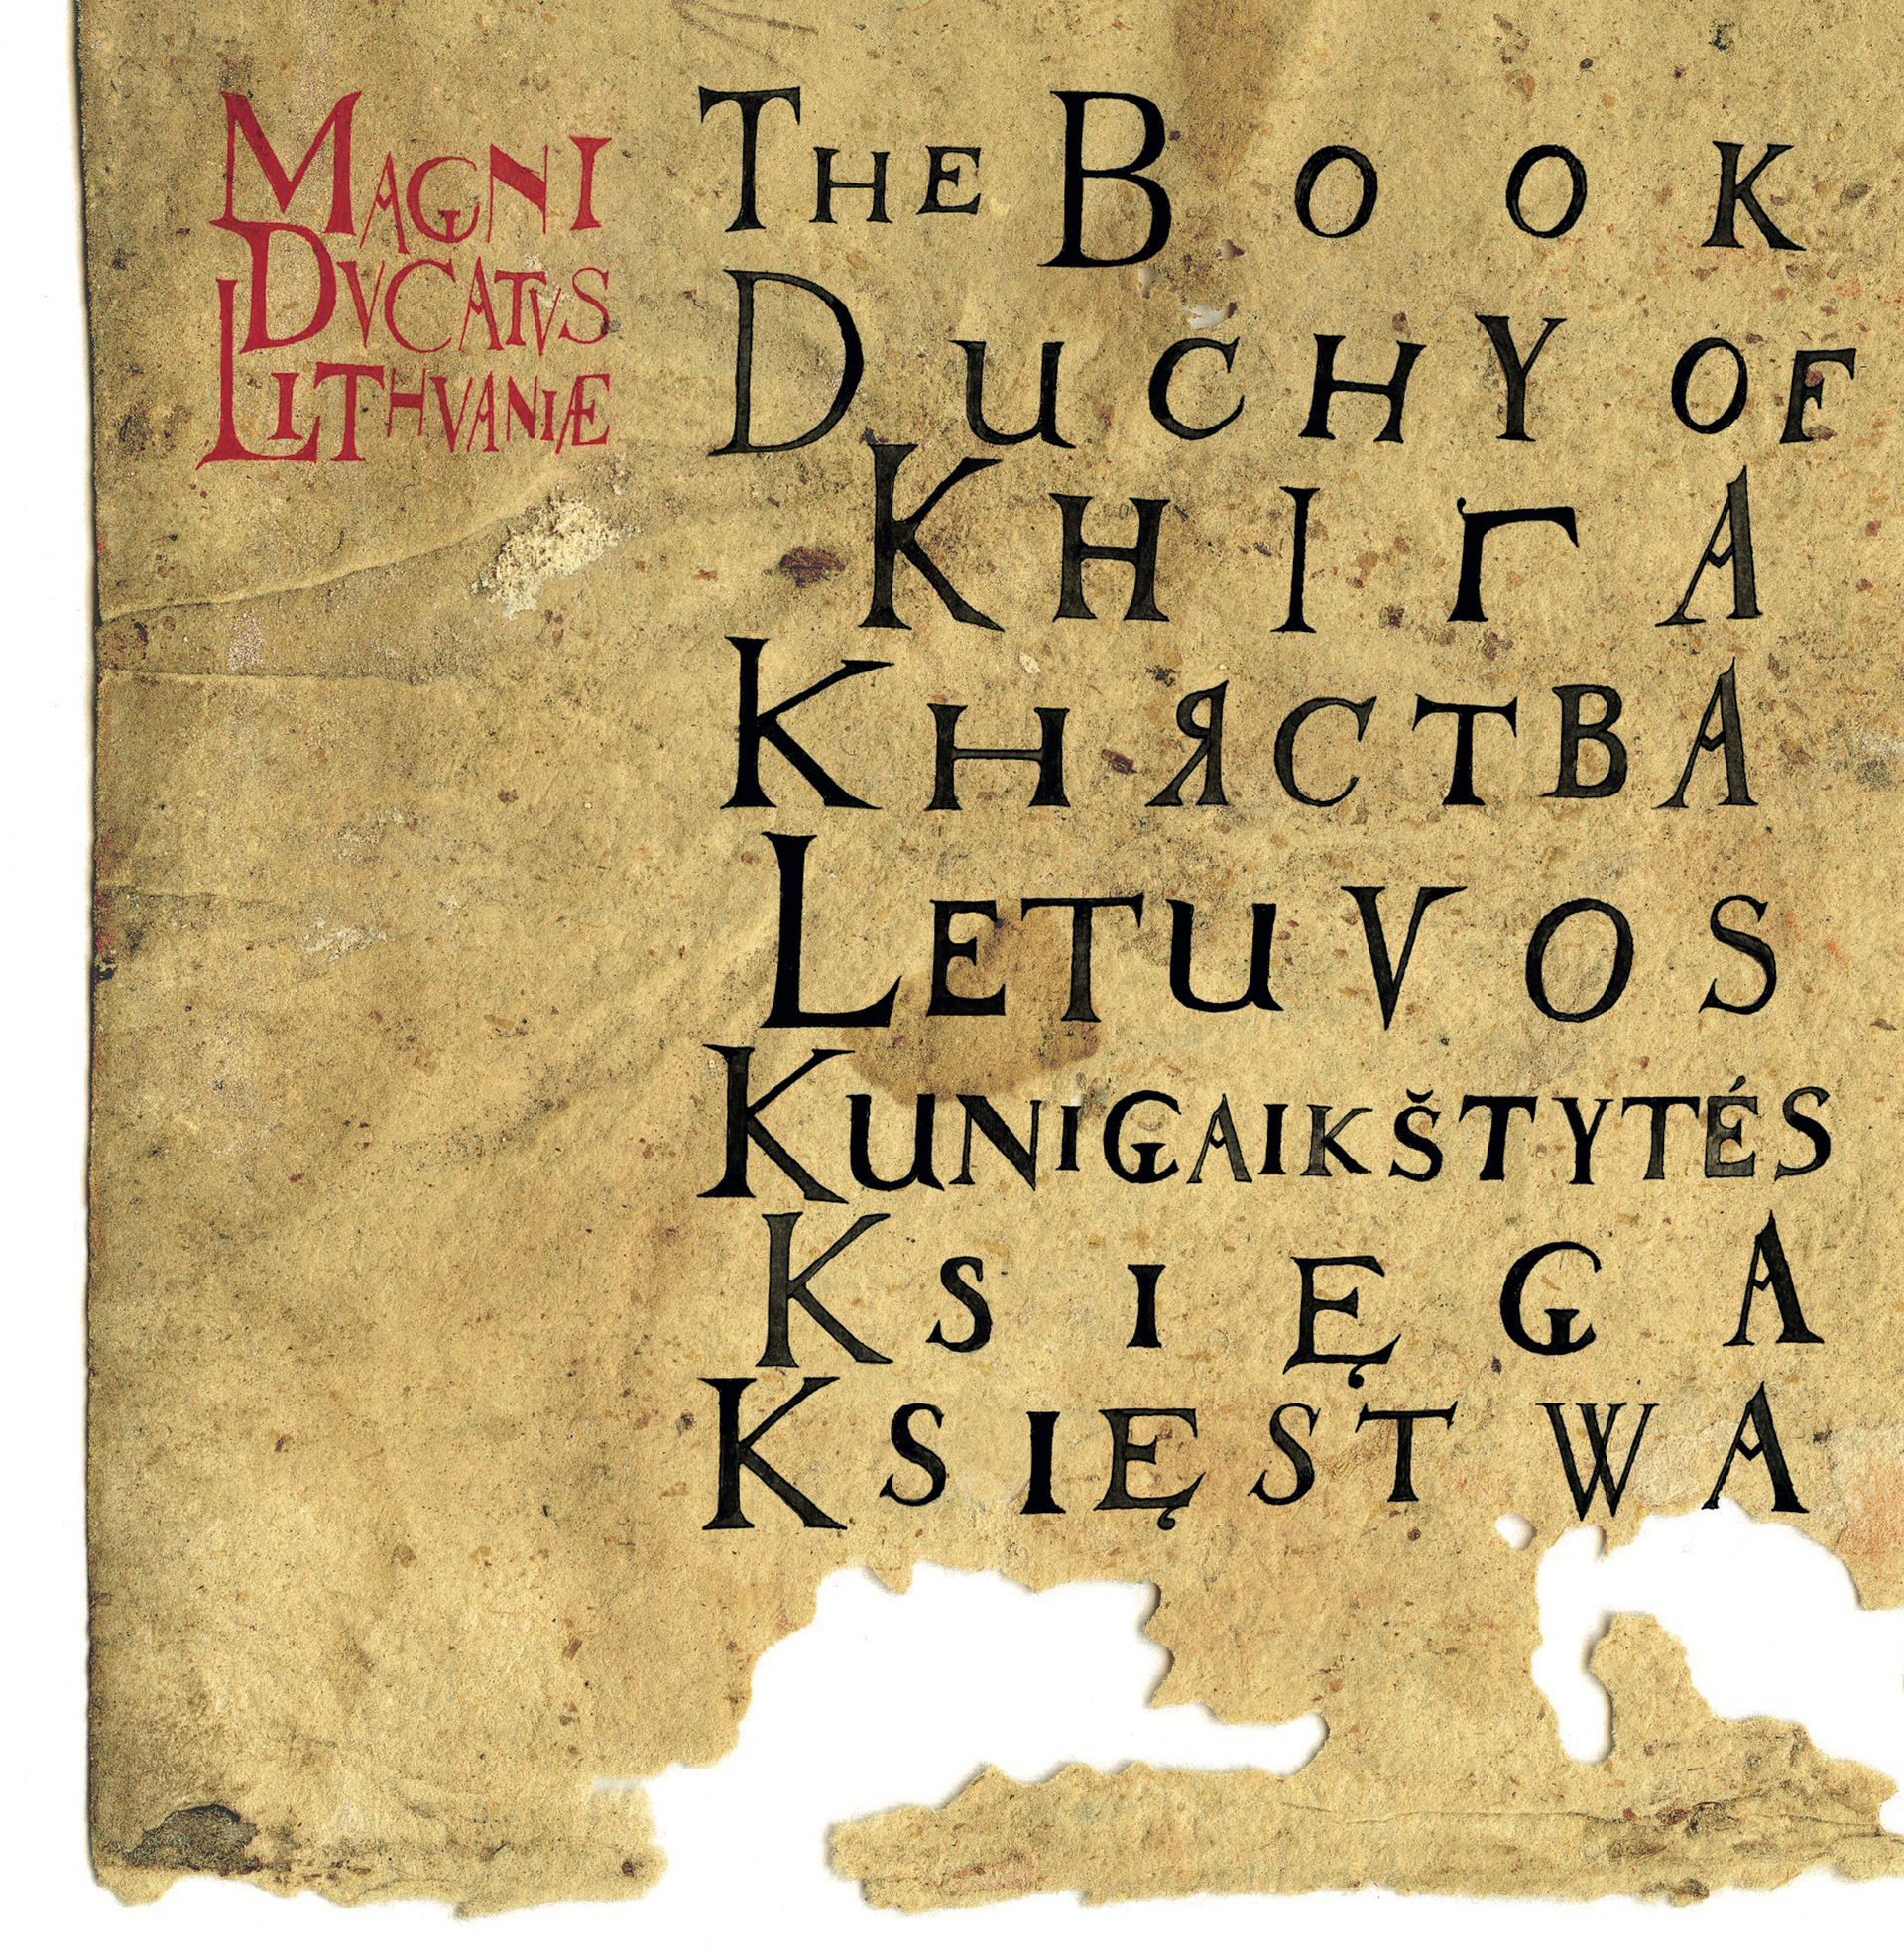 MAGNI
DVCATVS
LITHVANIÆ
THE BOOK
DUCHY OF
КНІГА
КНЯСТВА
LETUVOS
KUNIGAIKŠTYTÉS
KSIĘGA
KSIĘSTWA